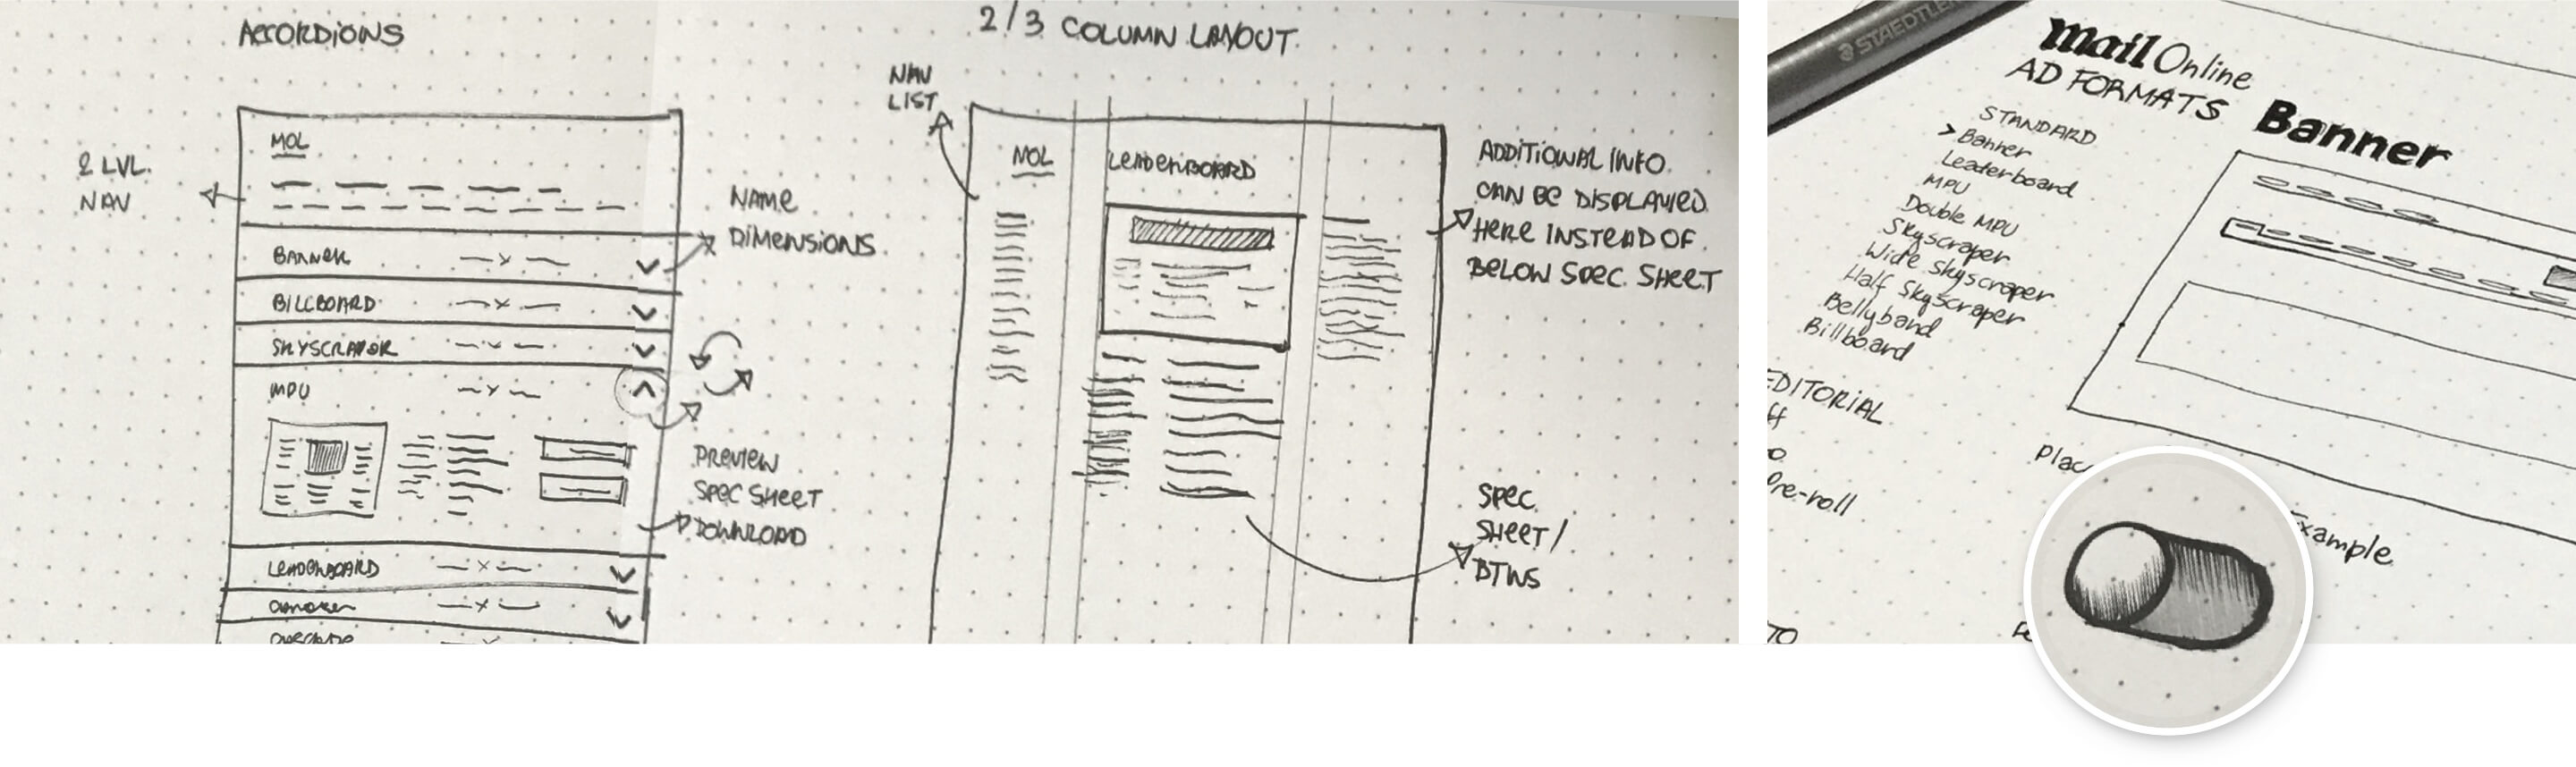 ACCORDIONS
2 LVL.
NAV
MOL
BANNER
BILLBOARD
MPU
LEADERBOARD
NAME
DIMENSIONS
PREVIEW
SPEC SHEET
DOWNLOAD
2/3 COLUMN LAYOUT
NAV
LIST
MOL
LEADERBOARD
ADDITIONAL INFO
CAN BE DISPLAYED
HERE INSTEAD OF
BELOW SPEC SHEET
SPEC
SHEET/
BTNS
STAEDTLER
Mail Online
AD FORMATS
STANDARD
> Banner
Leaderboard
MPU
Double MPU
Skyscraper
Wide Skyscraper
Half Skyscraper
Bellyband
Billboard
EDITORIAL
Pre-roll
TO
Banner
Plac
Example